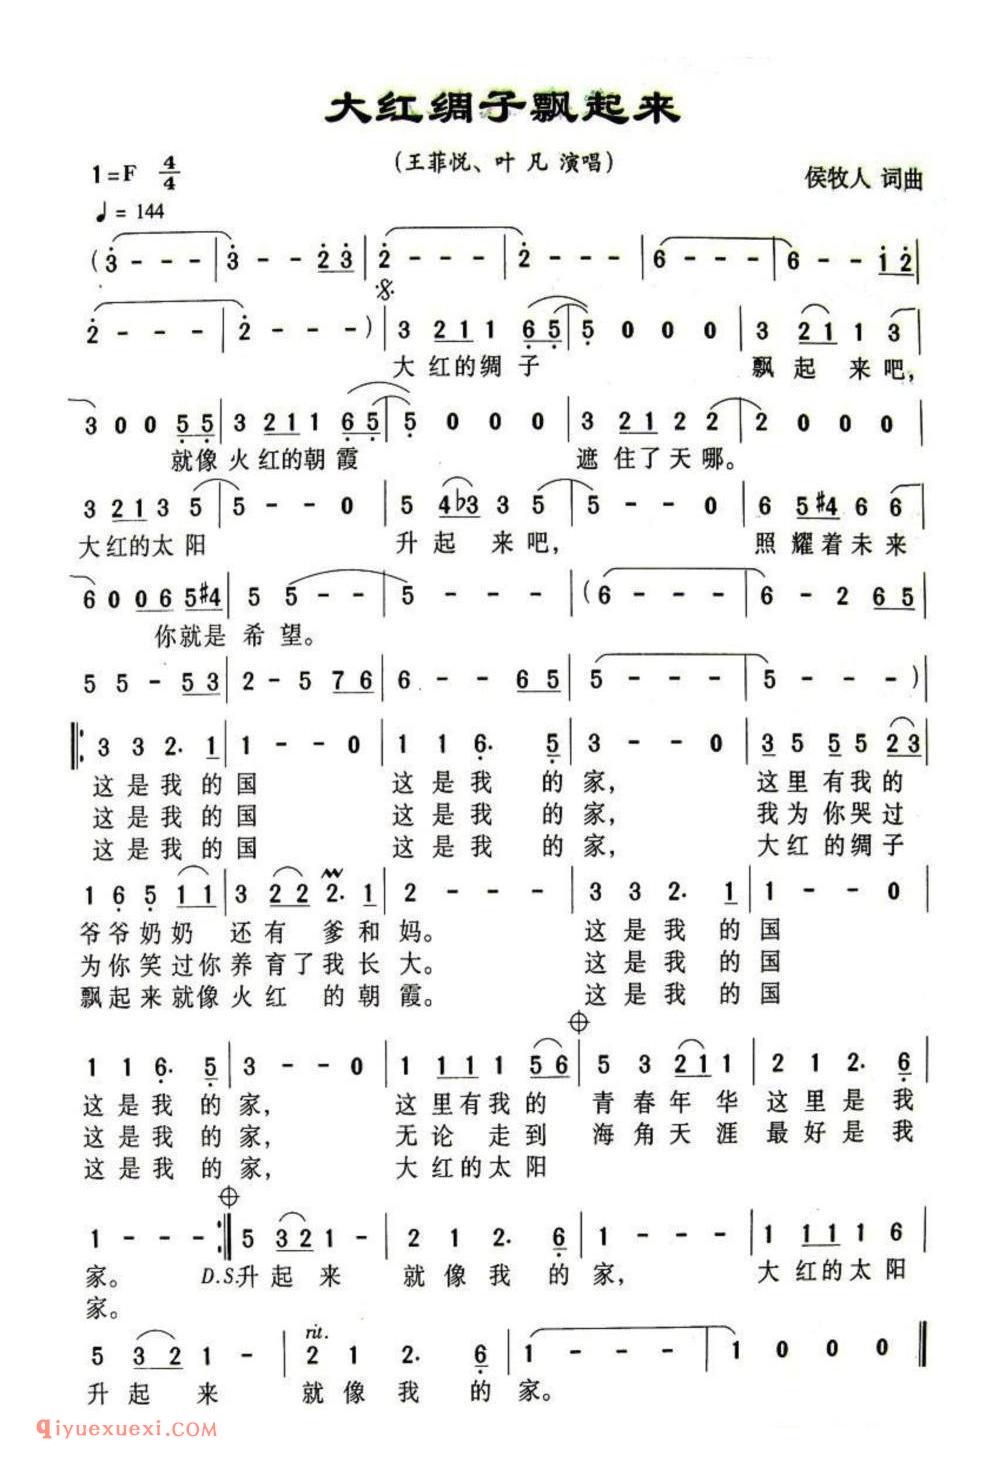 大红绸子飘起来
(王菲悦、叶 凡 演唱)
1=F 4/4
侯牧人 词曲
♩= 144
(3 - - - | 3 - - 2 3 | 2 - - - | 2 - - - | 6 - - - | 6 - - 1 2 |
2 - - - | 2 - - - ) | 3 2 1 1 1 6 5 | 5 0 0 0 | 3 2 1 1 3 |
大 红的绸 子 飘 起 来 吧，
3 0 0 5 5 | 3 2 1 1 1 6 5 | 5 0 0 0 | 3 2 1 2 2 2 | 2 0 0 0 |
就像 火 红的朝 霞 遮 住了 天 哪。
3 2 1 3 5 | 5 - - 0 | 5 4 ♭3 3 5 | 5 - - 0 | 6 5 #4 6 6 |
大红的太 阳 升 起 来 吧， 照 耀着未 来
6 0 0 6 5 #4 | 5 5 - - | 5 - - - | (6 - - - | 6 - 2 6 5 |
你就是 希 望。
5 5 - 5 3 | 2 - 5 7 6 | 6 - - 6 5 | 5 - - - | 5 - - - ) |
‖: 3 3 2. 1 | 1 - - 0 | 1 1 6. 5 | 3 - - 0 | 3 5 5 5 2 3 |
这 是 我 的 国 这 是 我 的 家， 这 里 有 我 的
这 是 我 的 国 这 是 我 的 家， 我 为 你 哭 过
这 是 我 的 国 这 是 我 的 家， 大 红 的 绸 子
1 6 5 1 1 | 3 2 2 2. 1 | 2 - - - | 3 3 2. 1 | 1 - - 0 |
爷 爷 奶 奶 还 有 爹 和 妈。 这 是 我 的 国
为 你 笑 过 你 养 育 了 我 长 大。 这 是 我 的 国
飘 起 来 就 像 火 红 的 朝 霞。 这 是 我 的 国
1 1 6. 5 | 3 - - 0 | 1 1 1 1 5 6 | 5 3 2 1 1 | 2 1 2. 6 |
这 是 我 的 家， 这 里 有 我 的 青 春 年 华 这 里 是 我
这 是 我 的 家， 无 论 走 到 海 角 天 涯 最 好 是 我
这 是 我 的 家， 大 红 的 太 阳
1 - - - :‖ 5 3 2 1 - | 2 1 2. 6 | 1 - - - | 1 1 1 1 6 |
家。 D.S. 升 起 来 就 像 我 的 家， 大 红 的 太 阳
家。
rit.
5 3 2 1 - | 2 1 2. 6 | 1 - - - | 1 0 0 0 ‖
升 起 来 就 像 我 的 家。
qiyuexuexi.COM